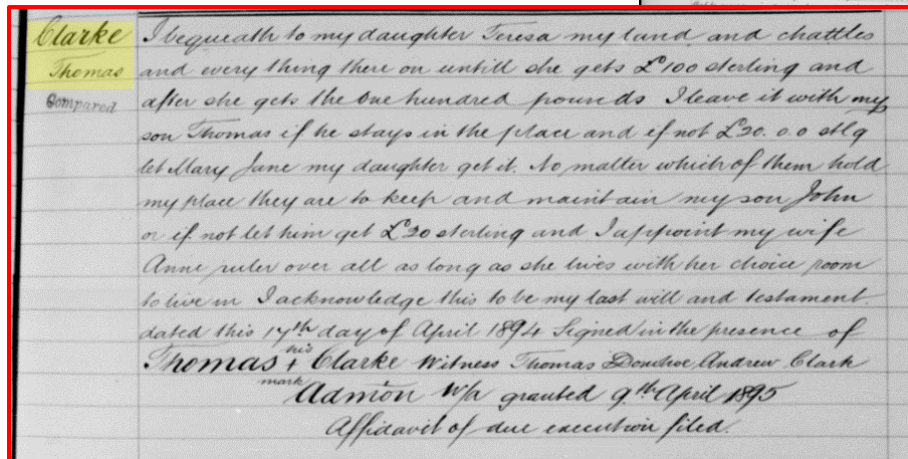 Clarke
Thomas
Compared
I bequeath to my daughter Teresa my land and chattles
and every thing there on untill she gets £100 sterling and
after she gets the One hundred pounds I leave it with my
son Thomas if he stays in the place and if not £20. 0. 0 stlg
let Mary Jane my daughter get it. No matter which of them hold
my place they are to keep and maintain my son John
or if not let him get £20 sterling and I appoint my wife
Anne ruler over all as long as she lives with her choice room
to live in I acknowledge this to be my last will and testament.
dated this 17th day of April 1894 Signed in the presence of
Thomas his + mark Clarke Witness Thomas Donohoe, Andrew Clark
Admōn W/a granted 9th April 1895
Affidavit of due execution filed.